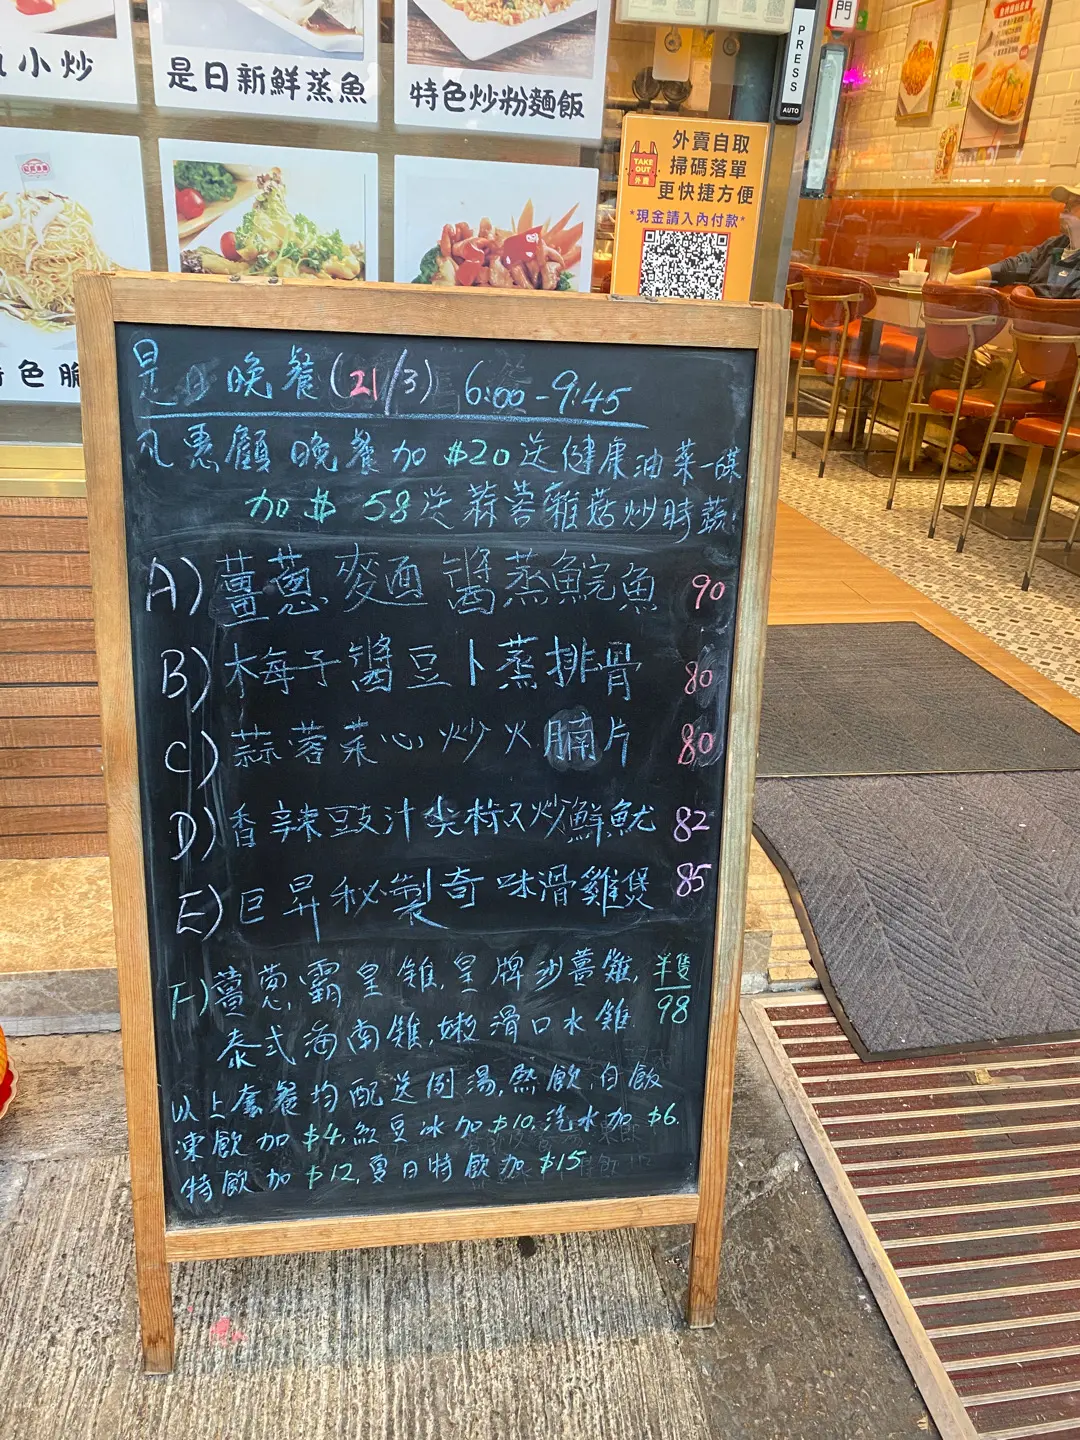 小炒
是日新鮮蒸魚
特色炒粉麵飯
門
PRESS
AUTO
TAKE OUT
外賣
外賣自取
掃碼落單
更快捷方便
*現金請入內付款*
色脆
是日晚餐(21/3) 6:00-9:45
凡惠顧晚餐加$20送健康油菜一碟
加$58送蒜蓉雜菇炒時蔬
A) 薑蔥麥面醬蒸鯇魚 90
B) 梅子醬豆卜蒸排骨 80
C) 蒜蓉菜心炒火腩片 80
D) 香辣豉汁尖椒炒鮮魷 82
E) 巨昇秘製奇味滑雞煲 85
F) 薑蔥,霸皇雞,皇牌沙薑雞, 半隻
泰式海南雞,嫩滑口水雞 98
以上套餐均配送例湯,熱飲,白飯
凍飲加$4,紅豆冰加$10,汽水加$6.
特飲加$12,夏日特飲加$15